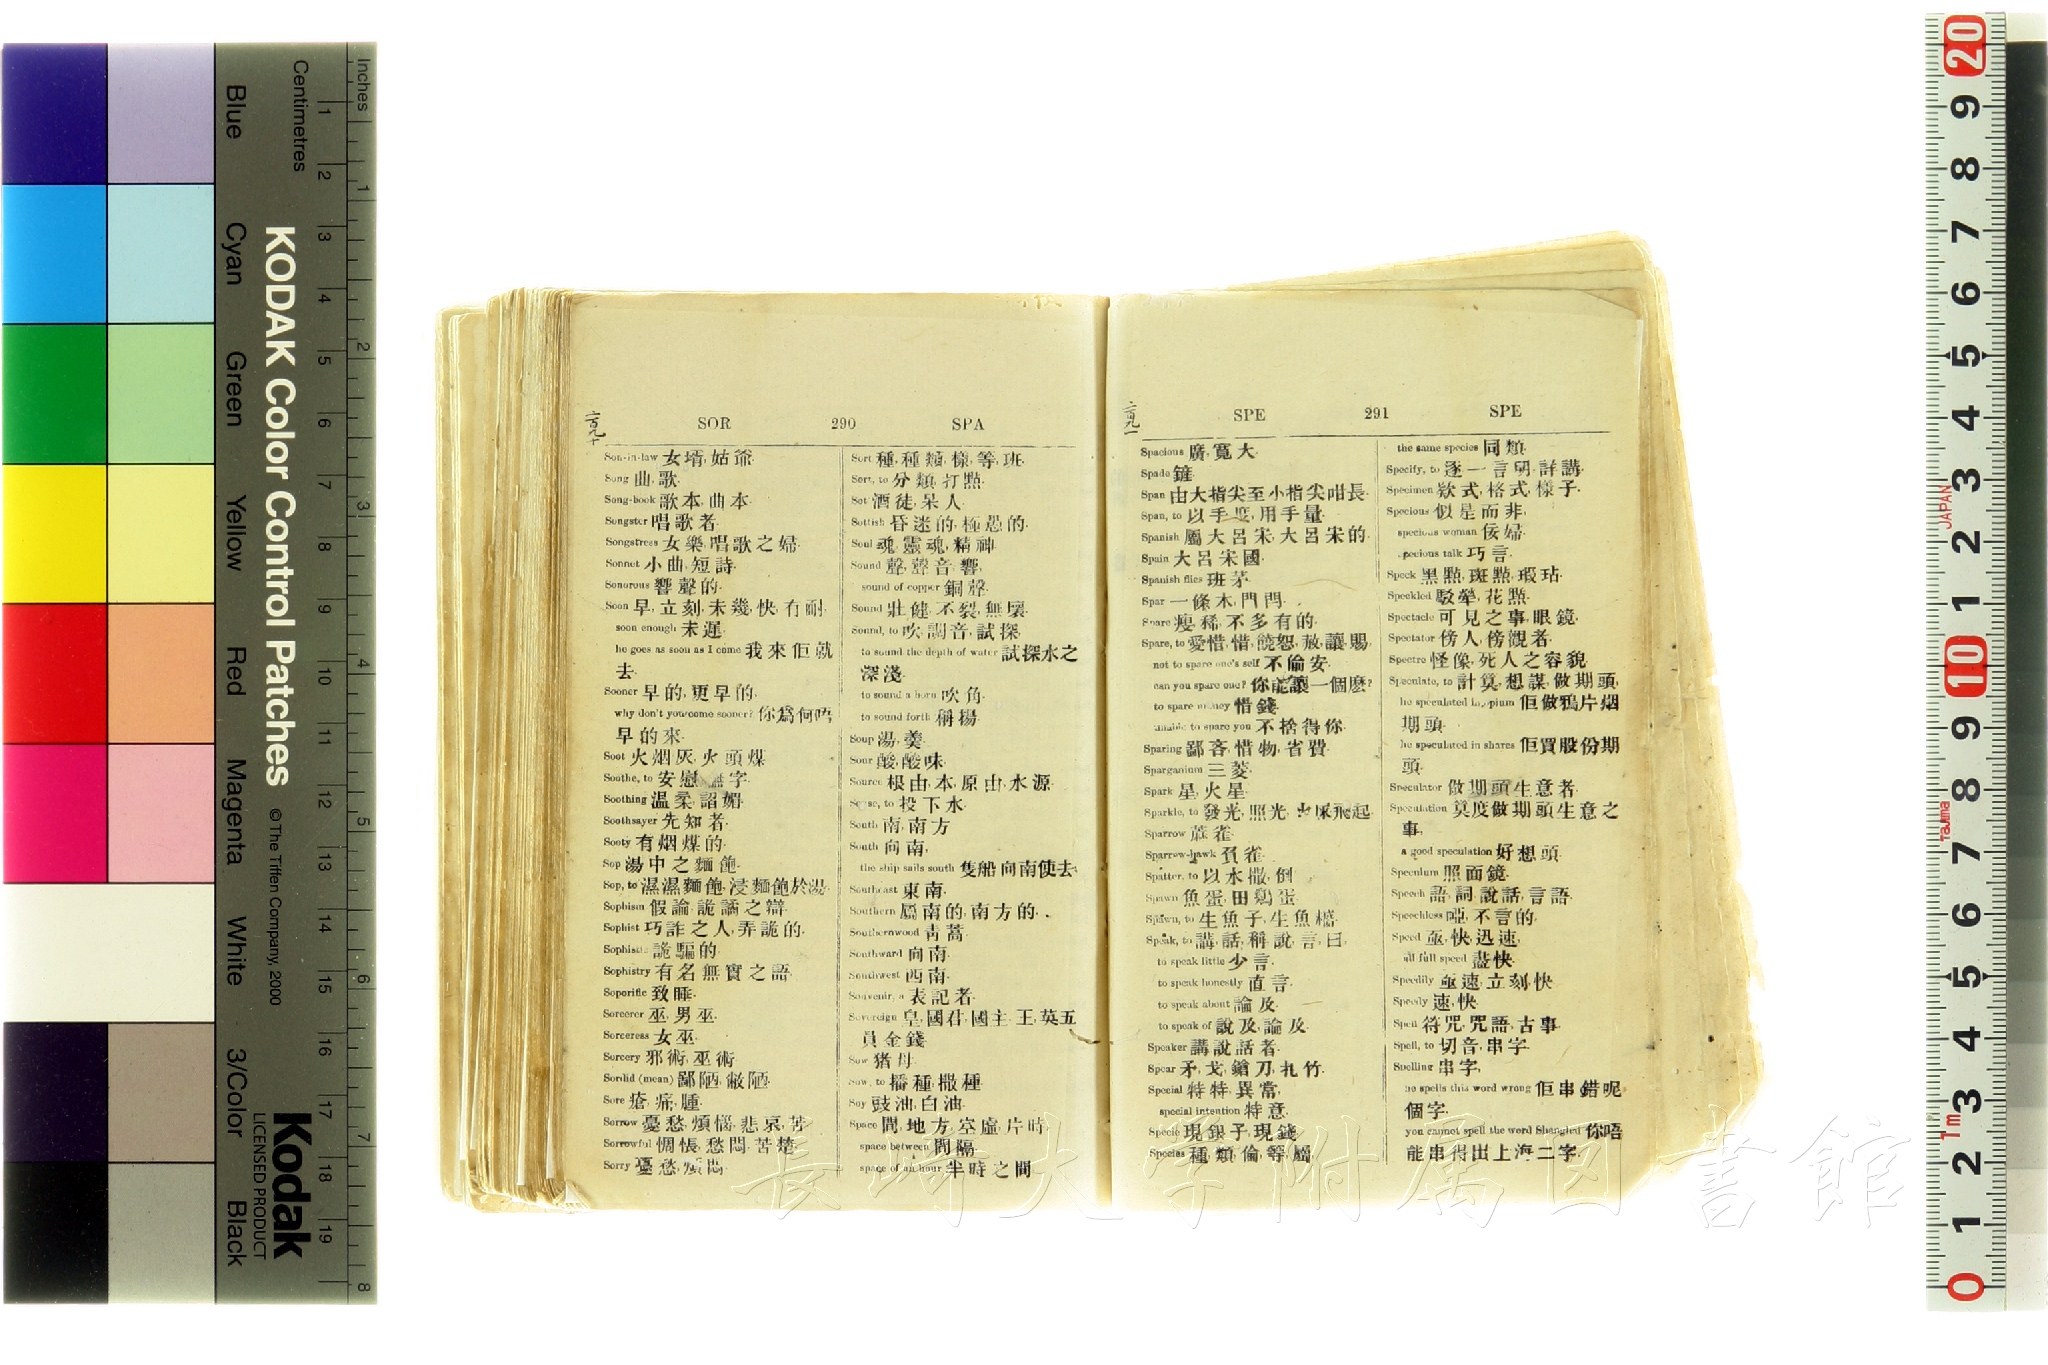 SOR 290 SPA
二百九十
Son-in-law 女壻, 姑爺.
Song 曲, 歌.
Song-book 歌本, 曲本.
Songster 唱歌者.
Songstress 女樂, 唱歌之婦.
Sonnet 小曲, 短詩.
Sonorous 響聲的.
Soon 早, 立刻, 未幾, 快, 冇耐.
soon enough 未遲.
he goes as soon as I come 我來佢就
去.
Sooner 早的, 更早的.
why don't you come sooner? 你爲何唔
早的來.
Soot 火烟灰, 火頭煤
Soothe, to 安慰
Soothing 温柔, 諂媚.
Soothsayer 先知者.
Sooty 有烟煤的.
Sop 湯中之麵飽.
Sop, to 濕濕麵飽, 浸麵飽於湯.
Sophism 假論, 詭譎之辯.
Sophist 巧詐之人, 弄詭的.
Sophistic 詭騙的.
Sophistry 有名無實之語.
Soporific 致睡.
Sorcerer 巫, 男巫.
Sorceress 女巫.
Sorcery 邪術, 巫術.
Sordid (mean) 鄙陋, 敝陋.
Sore 瘡, 痛, 腫.
Sorrow 憂愁, 煩惱, 悲哀, 苦.
Sorrowful 惆悵, 愁悶, 苦楚.
Sorry 憂愁, 煩悶.
Sort 種, 種類, 樣, 等, 班.
Sort, to 分類, 打點.
Sot 酒徒, 呆人.
Sottish 昏迷的, 極愚的.
Soul 魂, 靈魂, 精神.
Sound 聲, 聲音, 響.
sound of copper 銅聲.
Sound 壯健, 不裂, 無壞.
Sound, to 吹, 調音, 試探.
to sound the depth of water 試探水之
深淺.
to sound a horn 吹角.
to sound forth 稱揚.
Soup 湯, 羹.
Sour 酸, 酸味.
Source 根由, 本, 原由, 水源.
Souse, to 投下水.
South 南, 南方
South 向南.
the ship sails south 隻船向南使去.
Southeast 東南.
Southern 屬南的, 南方的.
Southernwood 靑蒿.
Southward 向南.
Southwest 西南.
Souvenir, a 表記者.
Sovereign 皇, 國君, 國主, 王, 英五
員金錢.
Sow 猪母.
Sow, to 播種, 撒種
Soy 豉油, 白油.
Space 間, 地方, 空虛, 片時.
space between 間隔.
space of an hour 半時之間
SPE 291 SPE
二百九一
Spacious 廣, 寬大.
Spade 鏟.
Span 由大指尖至小指尖咁長.
Span, to 以手度, 用手量.
Spanish 屬大呂宋, 大呂宋的.
Spain 大呂宋國.
Spanish flies 班茅.
Spar 一條木, 門閂.
Spare 瘦, 稀, 不多有的.
Spare, to 愛惜, 惜, 饒恕, 放, 讓, 賜.
not to spare one's self 不偷安.
can you spare one? 你能讓一個麽?
to spare money 惜錢.
unable to spare you 不捨得你.
Sparing 鄙吝, 惜物, 省費.
Sparganium 三菱.
Spark 星, 火星.
Sparkle, to 發光, 照光, 火屎飛起.
Sparrow 蔴雀.
Sparrow-hawk
Spatter, to 以水撒, 倒.
Spawn 魚蛋, 田鷄蛋.
Spawn, to 生魚子, 生魚
Speak, to 講, 話, 稱, 說, 言, 曰.
to speak little 少言.
to speak honestly 直言.
to speak about 論及.
to speak of 說及, 論及.
Speaker 講說話者.
Spear 矛, 戈, 鎗刀, 扎竹.
Special 特特, 異常.
special intention 特意.
Specie 現銀子, 現錢.
Species 種, 類, 倫, 等, 屬.
the same species 同類.
Specify, to 逐一言明, 詳講.
Specimen 欵式, 格式, 樣子.
Specious 似是而非.
specious woman 佞婦.
specious talk 巧言.
Speck 黑點, 斑點, 瑕玷.
Speckled 駁犖, 花點.
Spectacle 可見之事, 眼鏡.
Spectator 傍人, 傍觀者.
Spectre 怪像, 死人之容貌.
Speculate, to 計算, 想謀, 做期頭.
he speculated in opium 佢做鴉片烟
期頭.
he speculated in shares 佢買股份期
頭.
Speculator 做期頭生意者.
Speculation 算度做期頭生意之
事.
a good speculation 好想頭.
Speculum 照面鏡.
Speech 語, 詞, 說話, 言語.
Speechless 啞, 不言的.
Speed 亟, 快, 迅速.
at full speed 盡快.
Speedily 亟速, 立刻, 快.
Speedy 速, 快.
Spell 符咒, 咒語, 古事.
Spell, to 切音, 串字.
Spelling 串字.
he spells this word wrong 佢串錯呢
個字.
you cannot spell the word Shanghai 你唔
能串得出上海二字.
長崎大学附属図書館
KODAK Color Control Patches
© The Tiffen Company, 2000
Kodak
LICENSED PRODUCT
Inches 1 2 3 4 5 6 7 8
Centimetres 1 2 3 4 5 6 7 8 9 10 11 12 13 14 15 16 17 18 19
Blue Cyan Green Yellow Red Magenta White 3/Color Black
20 9 8 7 6 5 4 3 2 1 10 9 8 7 6 5 4 3 2 1 0
JAPAN
Tajima
1m